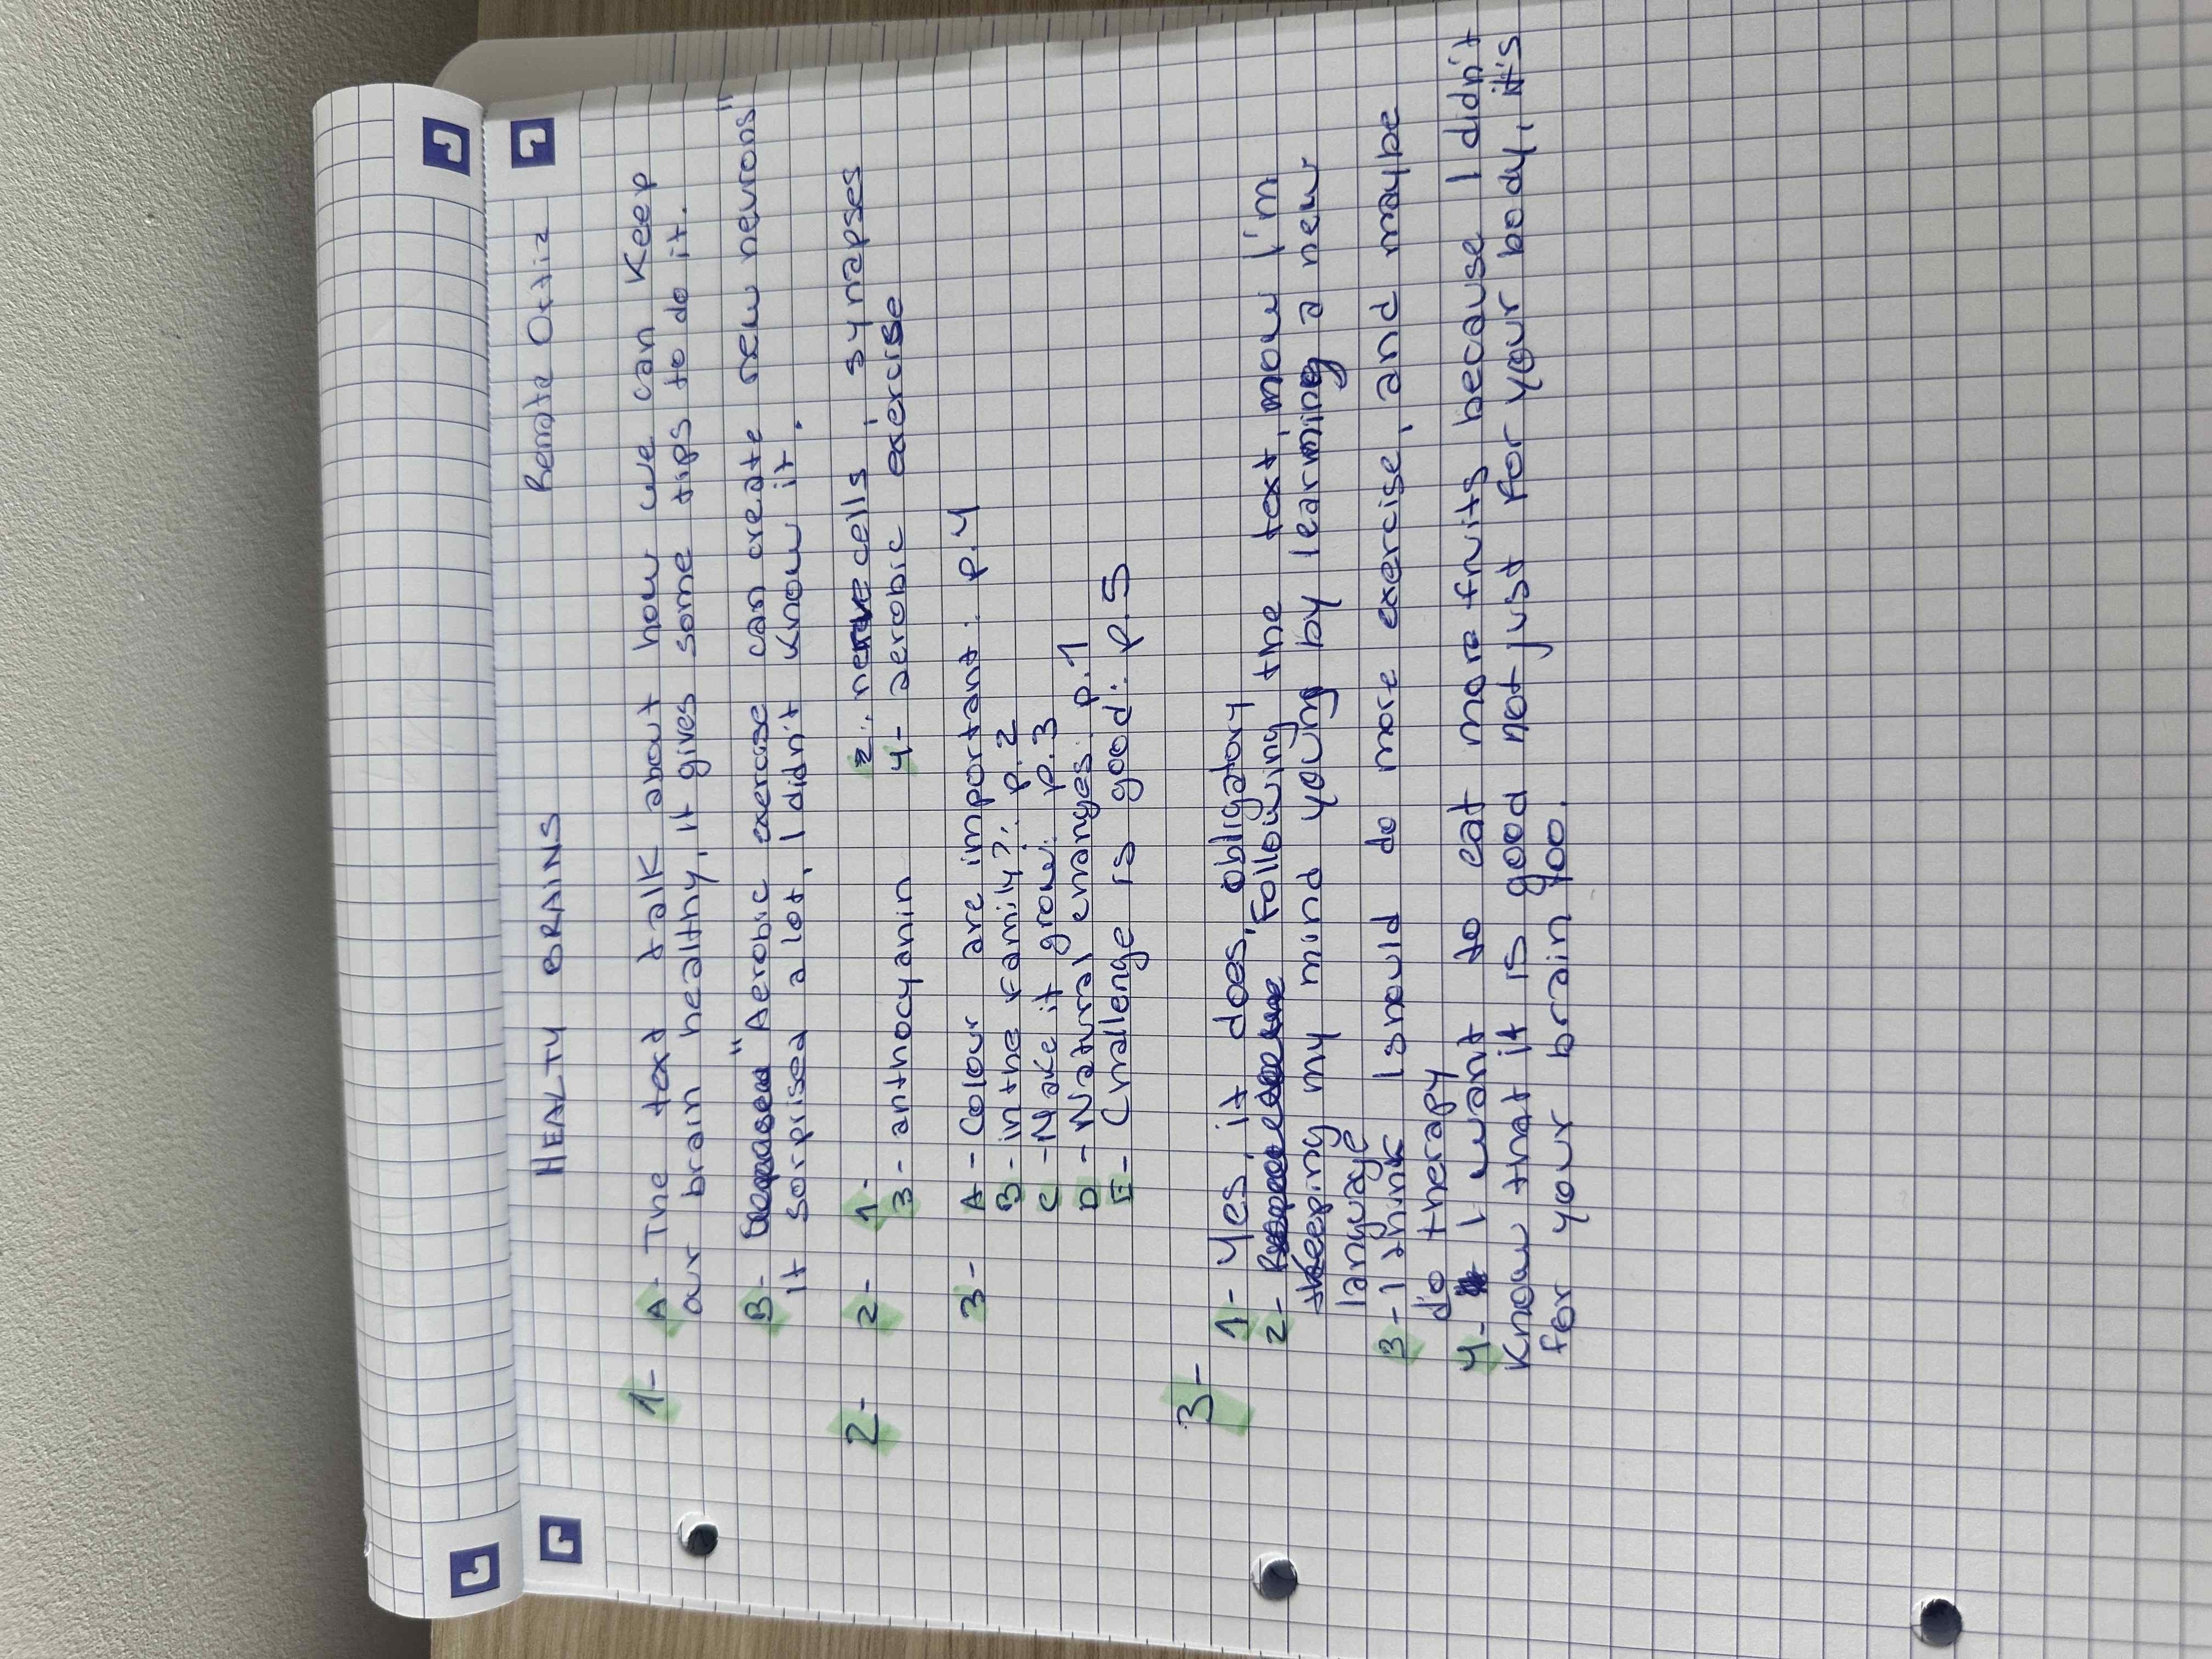 HEALTY BRAINS Renata Ortiz
1- A- The text talk about how we can keep
our brain healthy, it gives some tips to do it.
B- "Aerobic exercise can create new neurons"
It sorprised a lot, I didn't know it.
2- 2- 1- 2. nerve cells, synapses
3- anthocyanin 4- aerobic exercise
3- A- Colour are important: p.4
B- in the family?: p.2
C- Make it grow: p.3
D- Natural changes: p.1
E- Challenge is good: p.5
3- 1- Yes, it does, obligatory
2- Following the text, now I'm
keeping my mind young by learning a new
language
3- I think I should do more exercise, and maybe
do therapy
4- I want to eat more fruits because I didn't
know that it is good not just for your body, it's
for your brain too.